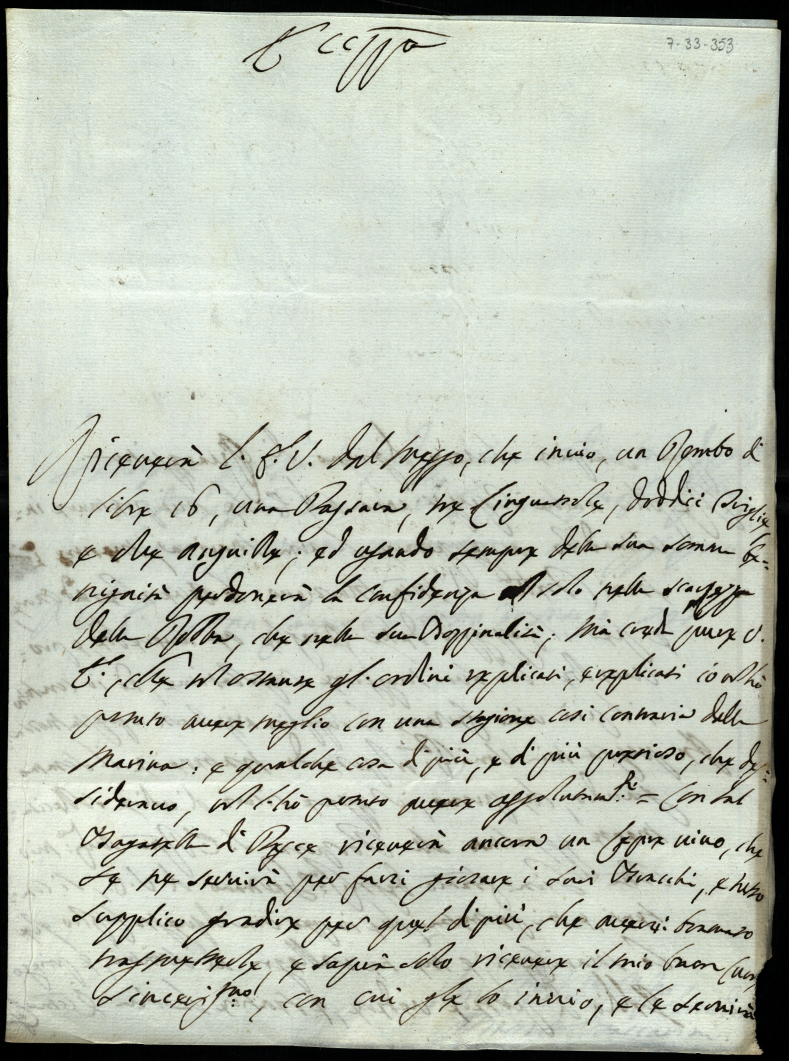 Ecc.za
7-33-353
Riceverà l'E. V. dal messo, che invio, un Rombo di
libre 16, una Passara, tre Cinguattole, dodici Triglie
e due anguille; ed usando sempre della sua somma be=
nignità perdonerà la confidenza solo nella scarsezza
della Robba, che nella sua Dozzinalità; mà creda pure V.
E., che non ostante gl'ordini replicati, e replicati io non hò
potuto avere meglio con una stagione così contraria della
Marina: e qualche cosa di più, e di più prezioso, che de=
sideravo, non l'hò potuto avere assolutam.te = Con tal
Bagatella di Pesce riceverà ancora un Lepre vivo, che
se ne servirà per fare giocare i suoi Bracchi, e tutto
supplico gradire per quel di più, che averei bramato
trasmetterle, e saprà solo ricevere il mio buon Cuore
sincerissmo, con cui gle lo invio, e le servirà